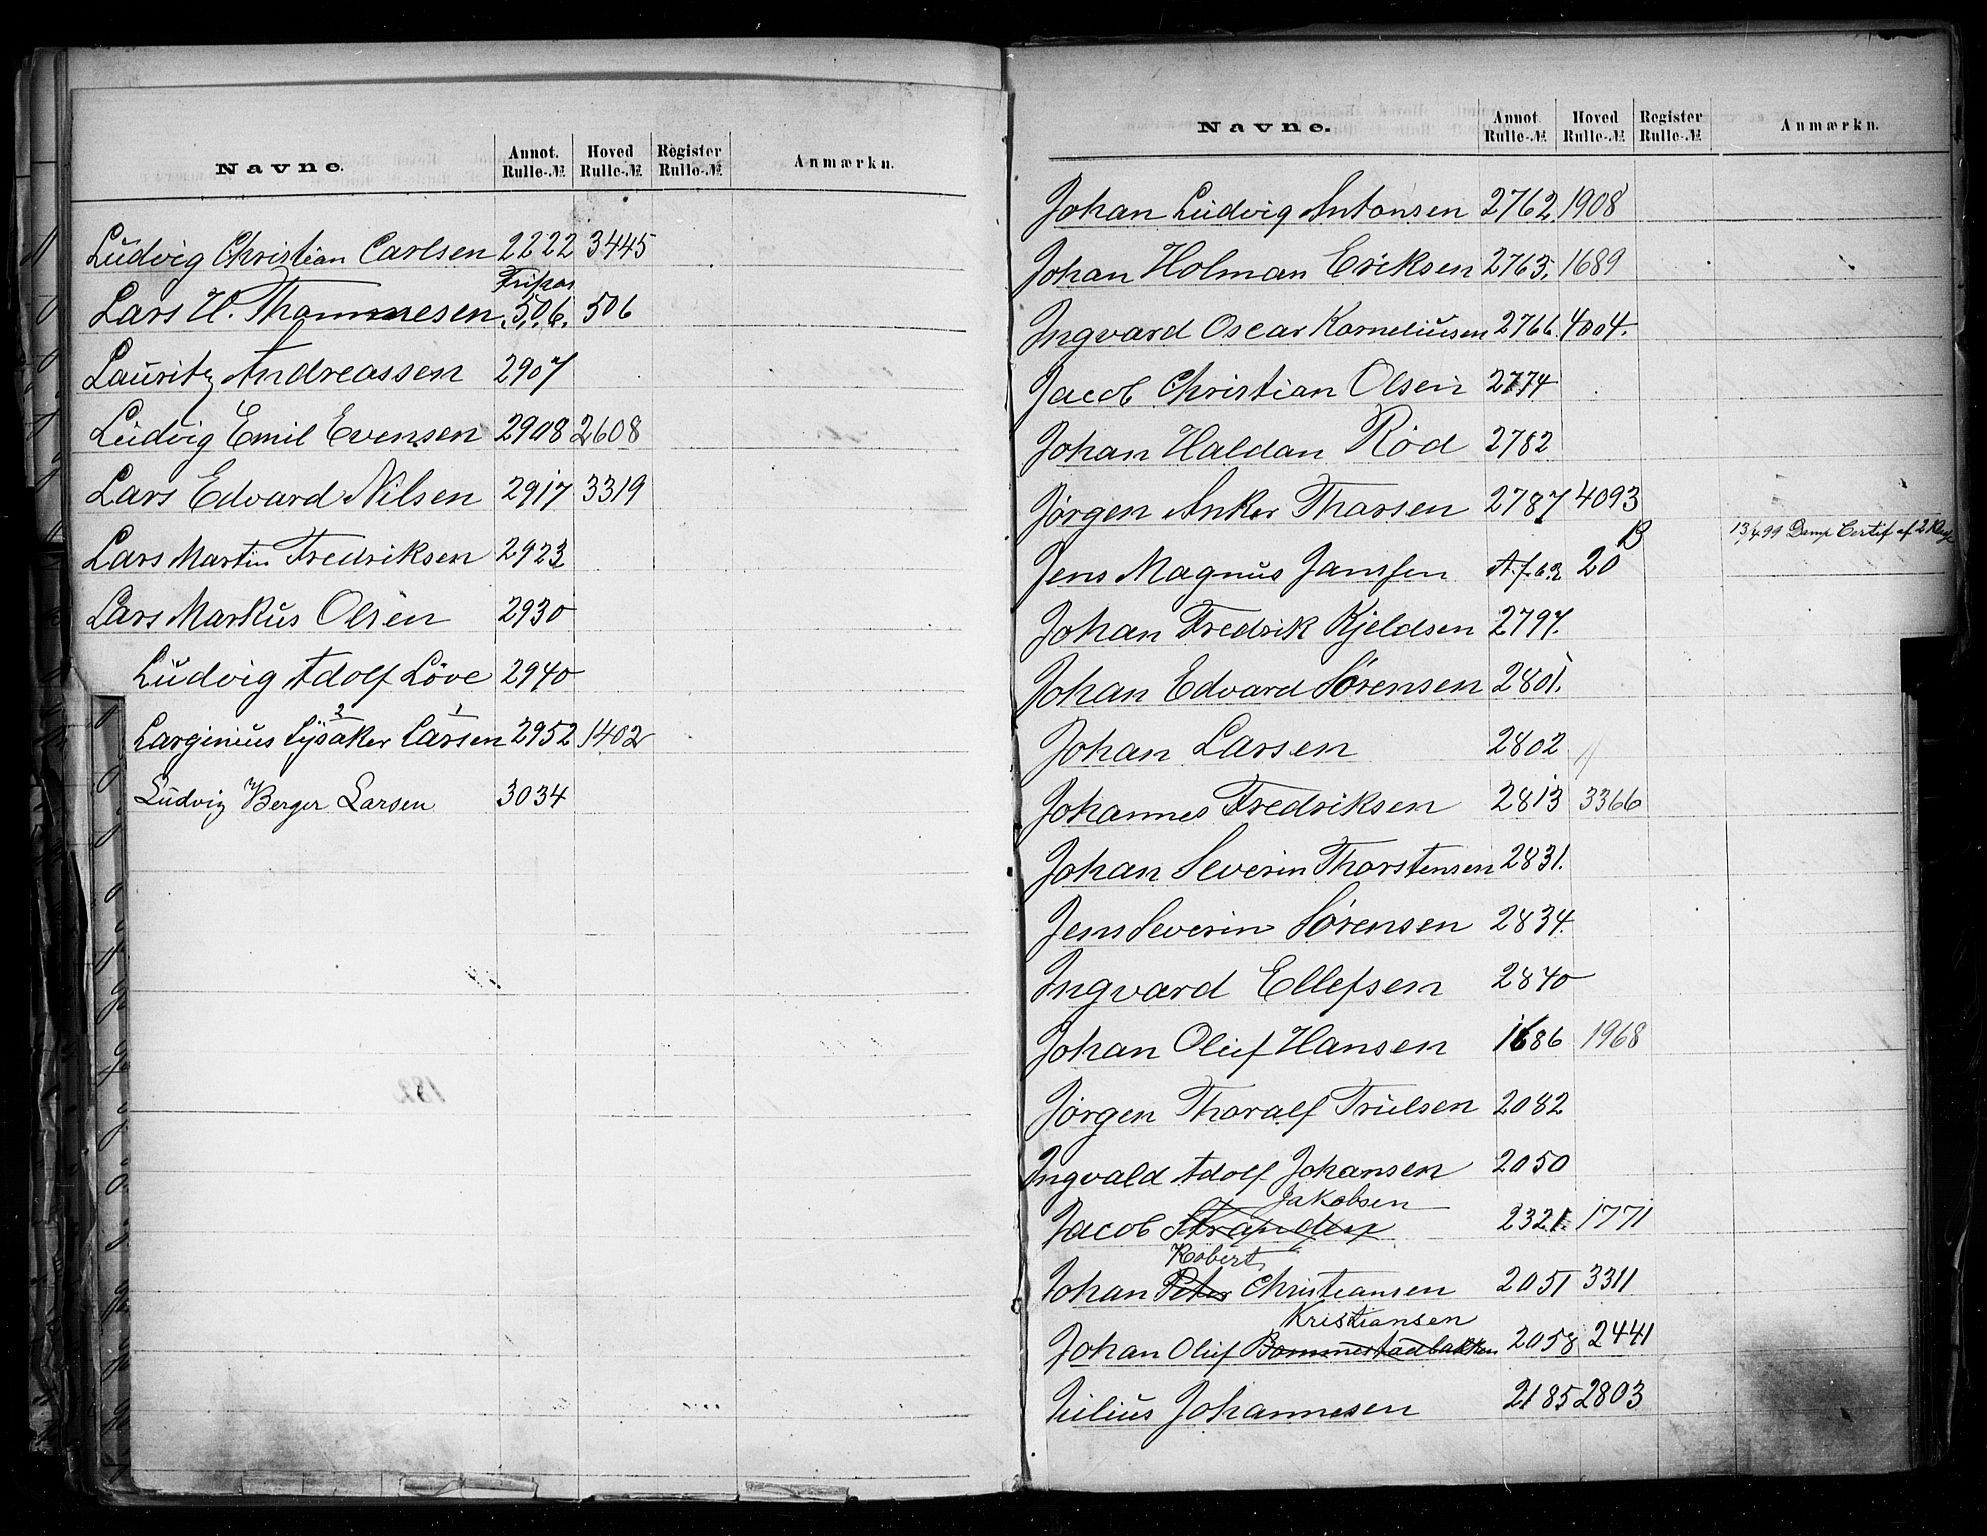 Navne. Annot. Rulle-№ Hoved Rulle-№ Register Rulle-№ Anmærkn.
Ludvig Christian Carlsen 2222 3445
Fripas
Lars H. Thommesen 506. 506
Lauritz Andreassen 2907
Ludvig Emil Evensen 2908 2608
Lars Edvard Nilsen 2917 3319
Lars Martin Fredriksen 2923
Lars Markus Olsen 2930
Ludvig Adolf Löve 2940
2 1
Larginius Lysaker Larsen 2952 1402
Ludvig Berger Larsen 3034
Navne. Annot. Rulle-№ Hoved Rulle-№ Register Rulle-№ Anmærkn.
Johan Ludvig Antonsen 2762 1908
Johan Holman Eriksen 2763. 1689
Ingvard Oscar Korneliusen 2766 4004.
Jacob Christian Olsen 2774
Johan Haldan Rød 2782
Jørgen Anker Thorsen 2787 4093
Jens Magnus Janssen 20 B 13/4 99 Damp Certif af 2 Kl
Johan Fredrik Kjeldsen 2797.
Johan Edvard Sørensen 2801.
Johan Larsen 2802
Johannes Fredriksen 2813 3366
Johan Severin Thorstensen 2831.
Jens Severin Sørensen 2834.
Ingvard Ellefsen 2840
Johan Oluf Hansen 1686 1968
Jørgen Thoralf Trulsen 2082
Ingvald Adolf Johansen 2050
Jakobsen
Jacob Stranden 2321. 1771
Robert
Johan Peter Christiansen 2051 3311
Kristiansen
Johan Oluf Bommestadbakken 2058 2441
Julius Johannesen 2185 2803